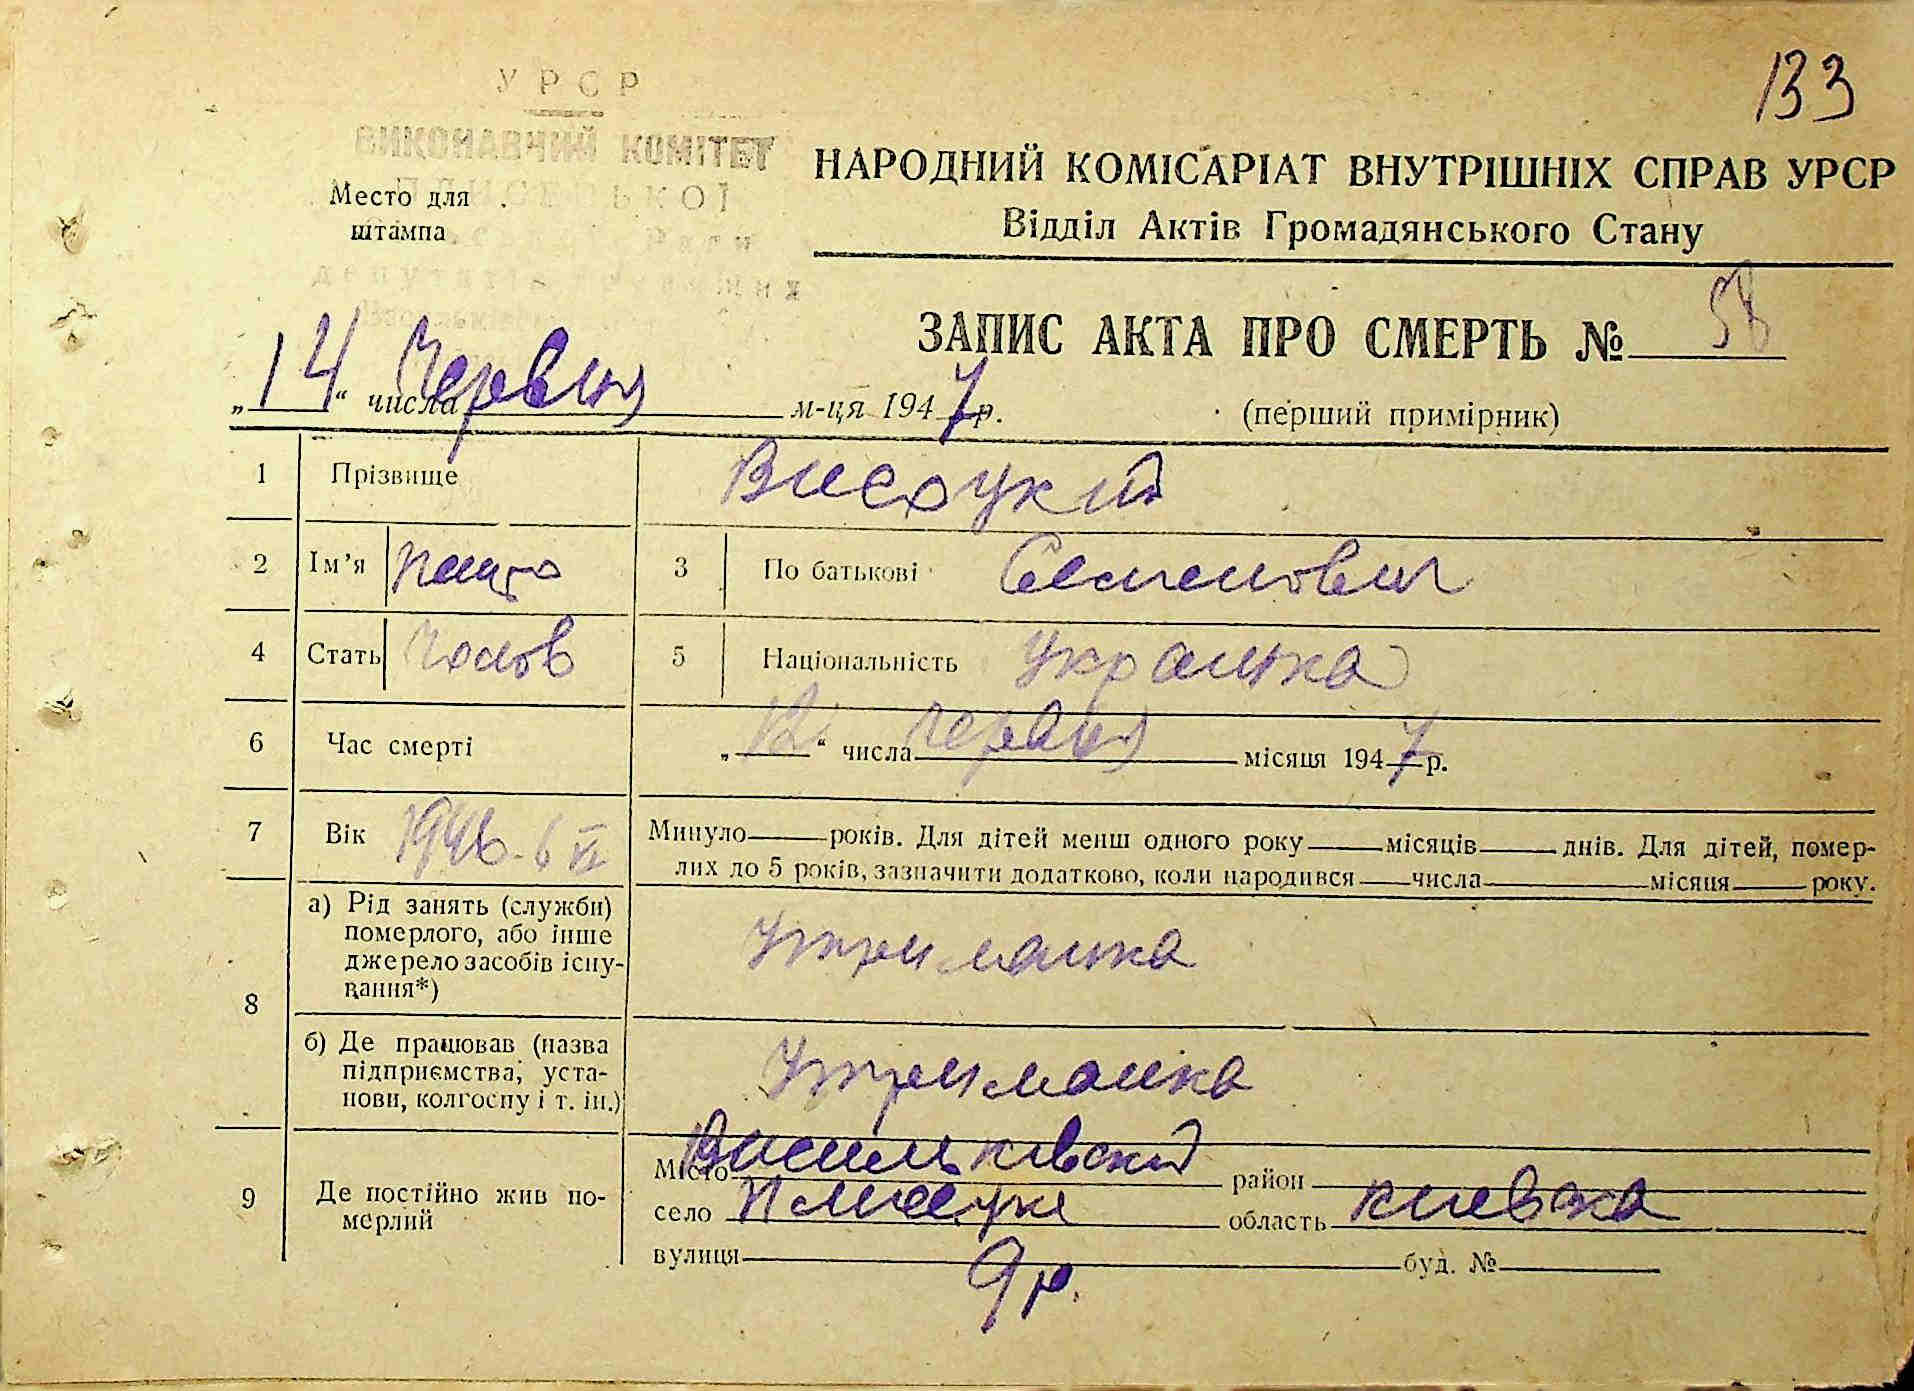 133
УРСР
ВИКОНАВЧИЙ КОМІТЕТ
Место для
штампа
НАРОДНИЙ КОМІСАРІАТ ВНУТРІШНІХ СПРАВ УРСР
Відділ Актів Громадянського Стану
ЗАПИС АКТА ПРО СМЕРТЬ №
„14“ числа Червня м-ця 1947 р.
(перший примірник)
1 Прізвище Висоцкий
2 Ім'я
3 По батькові Семенович
4 Стать Чолов
5 Національність Українка
6 Час смерті „12“ числа червня місяця 1947 р.
7 Вік 1946 - 6 VI Минуло років. Для дітей менш одного року місяців днів. Для дітей, помер-
лих до 5 років, зазначити додатково, коли народився числа місяця року.
8 а) Рід занять (служби)
померлого, або інше
джерело засобів існу-
вання*)
Утриманка
б) Де працював (назва
підприємства, уста-
нови, колгоспу і т. ін.)
Утриманка
9 Де постійно жив по-
мерлий
Місто район
село область киевска
вулиця буд. №
9 р.